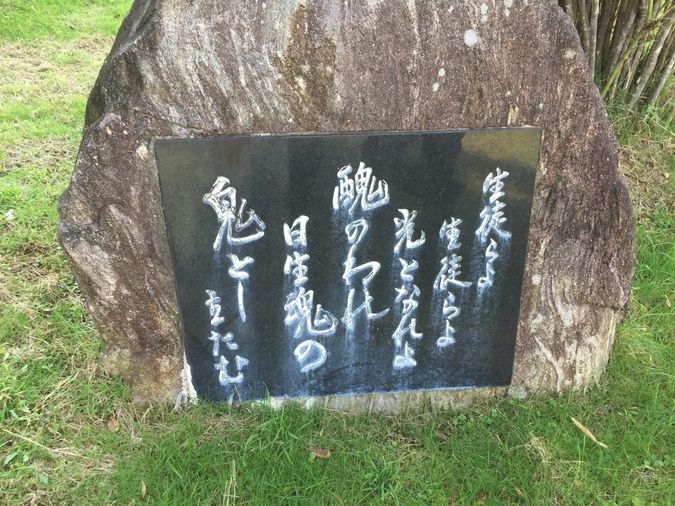 生徒らよ
生徒らよ
光となれよ
醜のわれ
日生魂の
鬼とし
立たむ